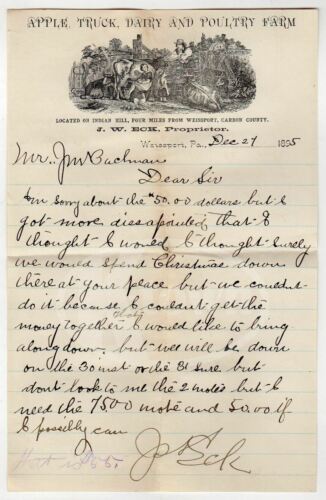 APPLE, TRUCK, DAIRY AND POULTRY FARM
LOCATED ON INDIAN HILL, FOUR MILES FROM WEISSPORT, CARBON COUNTY.
J. W. ECK, Proprietor.
Weissport, Pa., Dec 27 1895
Mr. Jm Bachman
Dear Sir
I'm sorry about the $50.00 dollars but I
got more dissapointed that I
thought I would I thought surely
we would spend Christmas down
there at your place but we couldn't
do it because I couldn't get the
money together that I would like to bring
along down. but we will be down
on the 30 inst or the 31 sure but
dont look to me the 2 notes but I
need the 75.00 note and 50.00 if
I possibly can
J W Eck